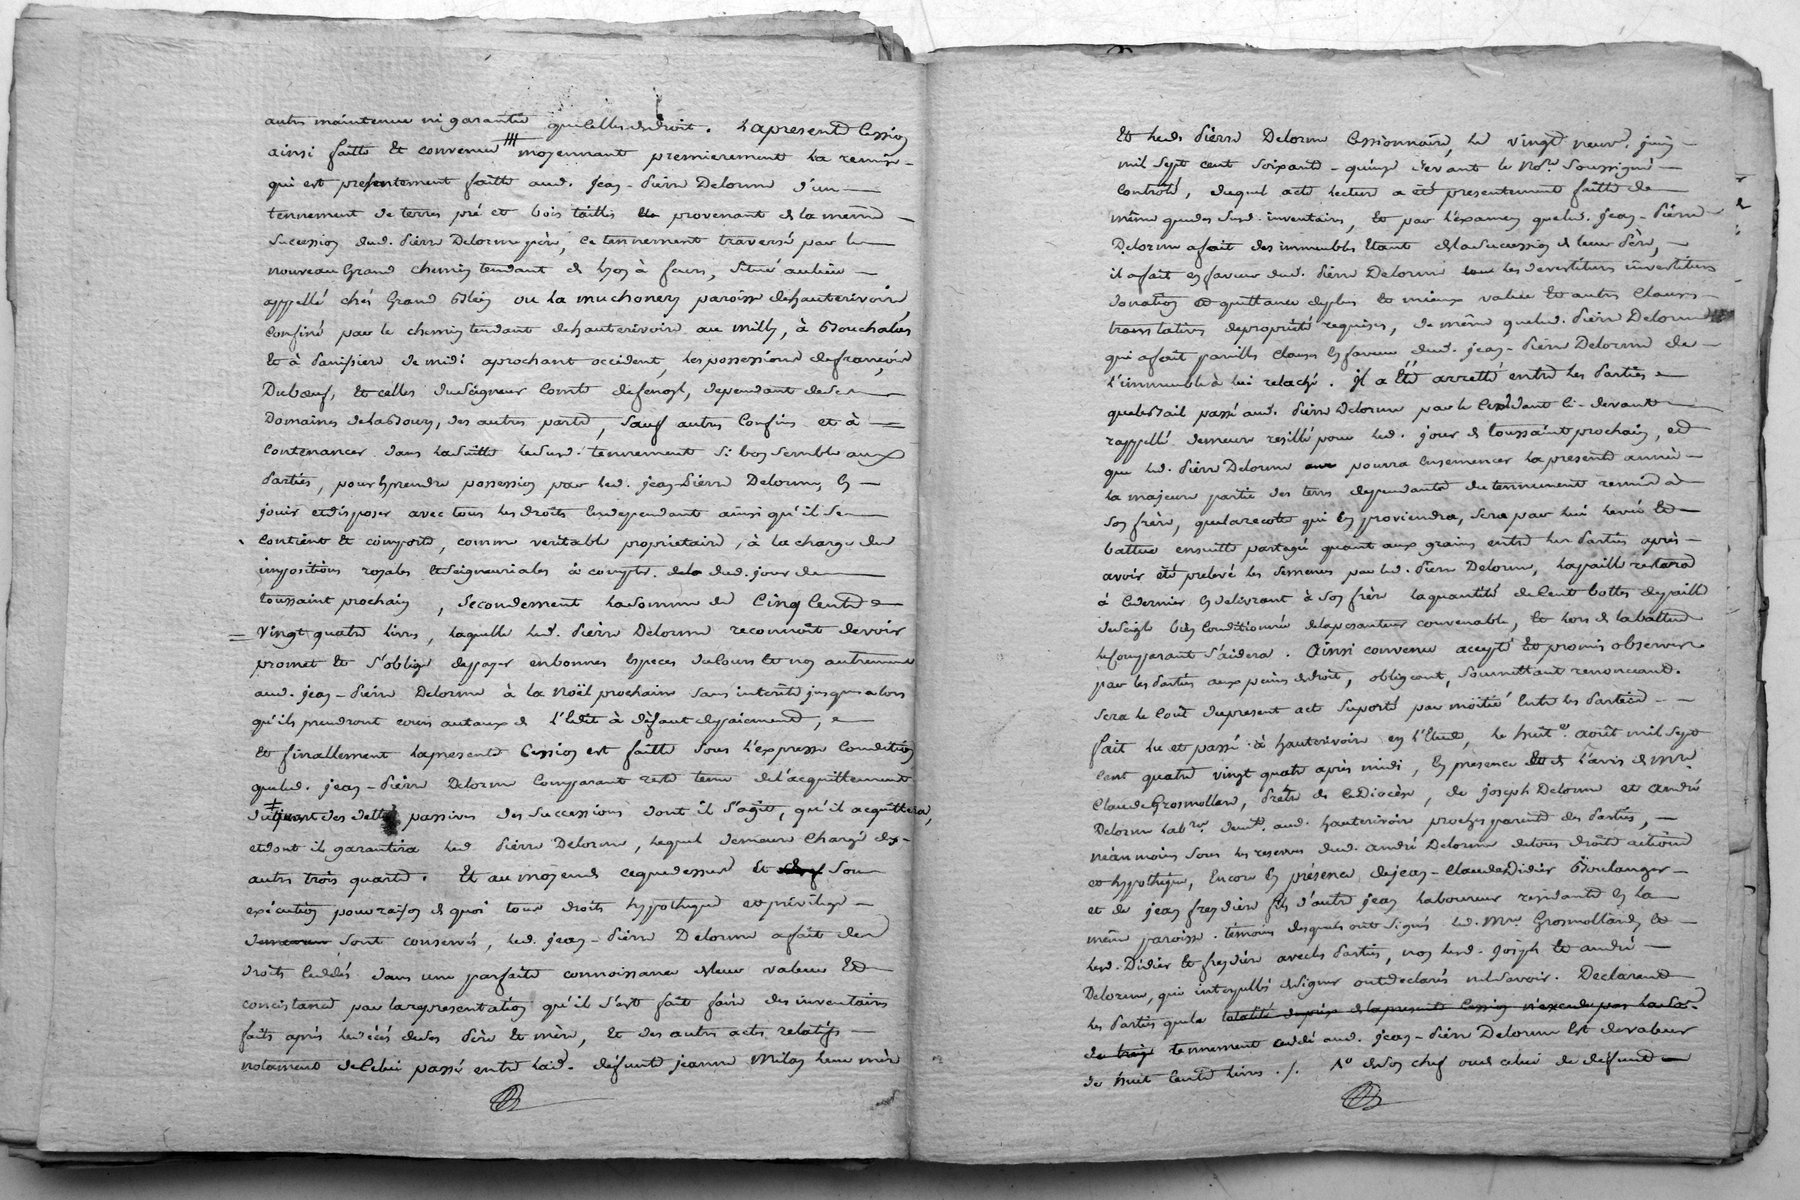 autre maintenue ni garantie que celles de droit. La presente Cession
ainsi faitte Et convenue moyennant premierement La remise
qui est presentement faitte aud. Jean-Pierre Delorme d'un
tennement de terres pré et bois taillis provenant de la même
Succession dud. Pierre Delorme père, Ce tennement traversé par le
nouveau Grand chemin tendant de Lyon à feurs, Situé au lieu
appellé chés Grand ou La muchonery paroisse de hauterivoire
Confiné par le chemin tendant de hauterivoire au milly, à Bouchalas
Et à Panissiere de midi aprochant occident, Les possessions de françois
Dubœuf, Et celles du Seigneur Comte de fenoyl, dependant de Ses
Domaines de des autres parts, Sauf autres Confins et à
Contenancer dans La Suitte Le Susd. tennement Si bon Semble aux
Parties, pour En prendre possession par Led. Jean-Pierre Delorme, En
jouir et disposer avec tous Les droits En dependant ainsi qu'il Se
Contient Et comporte, comme veritable proprietaire, à la charge des
impositions royales Et Seigneuriales à compter dud. jour de
toussaint prochain, Secondement La Somme de Cinq Cents
Vingt quatre Livres, Laquelle Led. Pierre Delorme reconnoit devoir
promet Et S'oblige de payer en bonnes Especes du Cours Et non autrement
aud. Jean-Pierre Delorme à La Noël prochaine Sans interêts jusqu'alors
qu'ils prendront cours au taux de L'Edit à défaut de paiement,
Et finallement La presente Cession est faitte Sous L'expresse Condition
que Led. Jean-Pierre Delorme Comparant reste tenu de L'acquittement
du quart des dettes passives des Successions dont il S'agit, qu'il acquittera,
et dont il garantira Led. Pierre Delorme, Lequel demeure Chargé des
autres trois quarts. Et au moyen de ce que dessus Et Son
exécution pour raison de quoi tous droits hypotheque et privilege
demeurent Sont conservés, Led. Jean-Pierre Delorme a fait des
droits Cédés dans une parfaite connoissance de Leur valeur Et
concistance par La representation qu'il S'est fait faire des inventaires
faits après Le décès de Ses Père Et mère, Et des autres actes relatifs
notament de Celui passé entre Lad. defunte Jeanne Milan Leur mère
Et Led. Pierre Delorme Cessionnaire, Le Vingt neuf juin
mil Sept cent Soixante-quinze devant Le No.re Soussigné
Controlé, duquel acte Lecture a été presentement faitte de
même que des Susd. inventaires, Et par L'examen que Led. Jean-Pierre
Delorme a fait des immeubles Etant de La Succession de Leur Père,
il a fait En faveur dud. Pierre Delorme Les devestitures investitures
donation Et quittance de plus Et mieux value Et autres Clauses
translatives de propriété requises, de même que Led. Pierre Delorme
qui a fait pareilles Clauses En faveur dud. Jean-Pierre Delorme de
L'immeuble à Lui relaché. Il a Eté arretté entre Les Parties
que Le Bail passé aud. Pierre Delorme par Le Cédant Ci-devant
rappellé demeure resillé pour Led. jour de toussaint prochain, Et
que Led. Pierre Delorme pourra Ensemencer La presente année
La majeure partie des terres dependantes du tennement remis à
Son frère, que La recolte qui En proviendra, Sera par Lui Levée Et
battue ensuitte partagée quant aux grains entre Les Parties après
avoir été prelevé Les Semences par Led. Pierre Delorme, La paille restera
à Ce dernier En delivrant à Son frère La quantité de Cent bottes de paille
de Seigle bien Conditionnée de La pesanteur convenable, Et Lors de La battue
Le Comparant S'aidera. Ainsi convenu accepté Et promis observer
par Les Parties aux peines de droit, obligeant, Soumettant renonceant.
Sera Le Coût du present acte Suporté par moitié Entre Les Parties
fait Lu et passé à hauterivoire En L'Etude, Le huit.e août mil Sept
Cent quatre Vingt quatre après midi, En presence Et de L'avis de Mre
Claude Grosmollard, Prêtre de Ce Diocèse, de Joseph Delorme et André
Delorme Lab.rs demt. aud. hauterivoire proches parents des Parties,
néanmoins Sous Les reserves dud. André Delorme de tous droits actions
et hypotheque, Encore En présence de Jean-Claude Didier Boulanger
et de Jean freydière fils d'autre Jean Laboureur residants En La
même paroisse témoins desquels ont Signé Led. Mre Grosmollard Et
Lesd. Didier Et freydière avec Les Parties, non Lesd. Joseph Et André
Delorme, qui interpellés de Signer ont declarés ne Savoir. Declarent
Les Parties que Le totalité du prix de La presente Cession n'excede pas La So.e
de tennement cedé aud. Jean-Pierre Delorme Est de valeur
de huit Cents Livres ./. de Son chef ou de celui de defunt